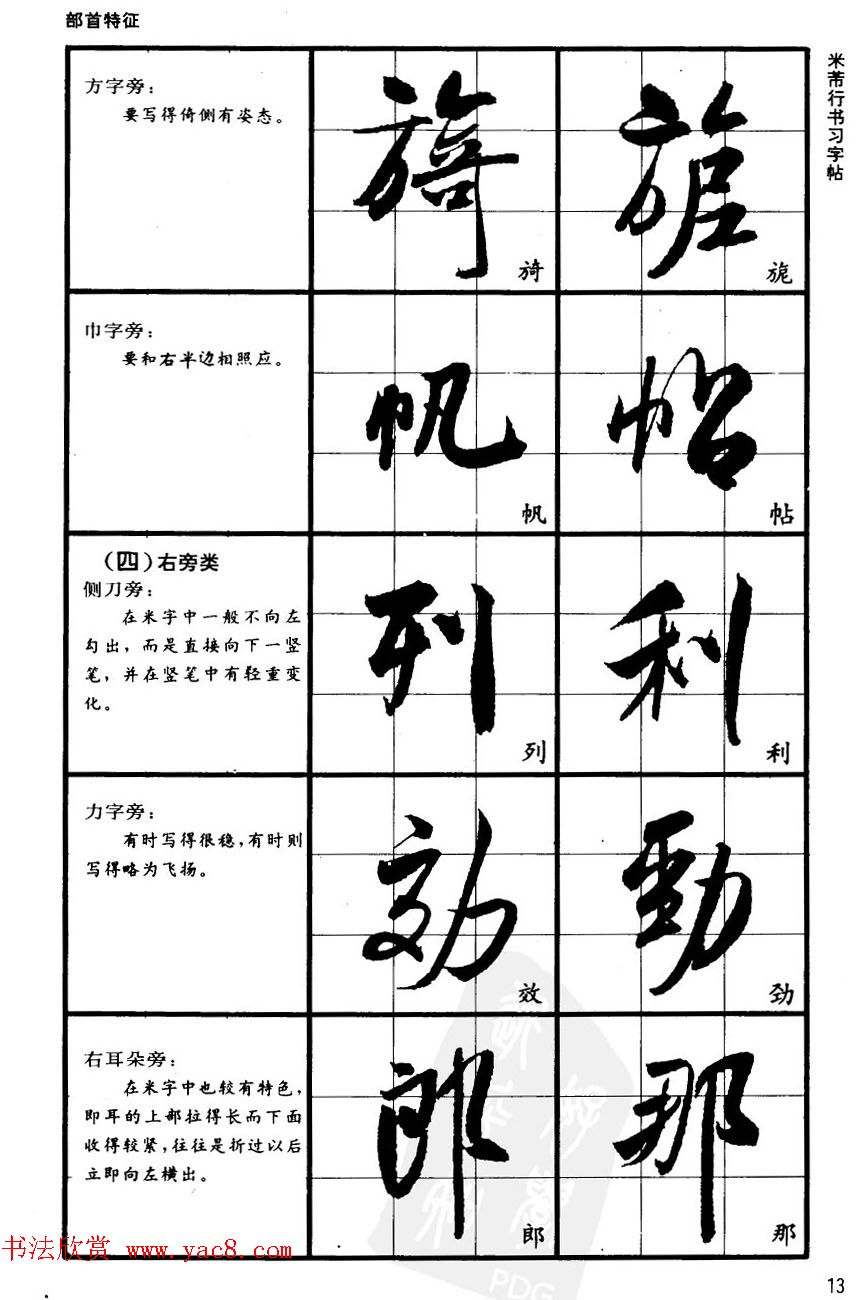 部首特征
米芾行书习字帖
方字旁：
要写得倚侧有姿态。
旑
旎
巾字旁：
要和右半边相照应。
帆
帖
（四）右旁类
侧刀旁：
在米字中一般不向左
勾出，而是直接向下一竖
笔，并在竖笔中有轻重变
化。
列
利
力字旁：
有时写得很稳，有时则
写得略为飞扬。
效
劲
右耳朵旁：
在米字中也较有特色，
即耳的上部拉得长而下面
收得较紧，往往是折过以后
立即向左横出。
郎
那
书法欣赏 www.yac8.com
PDG
13